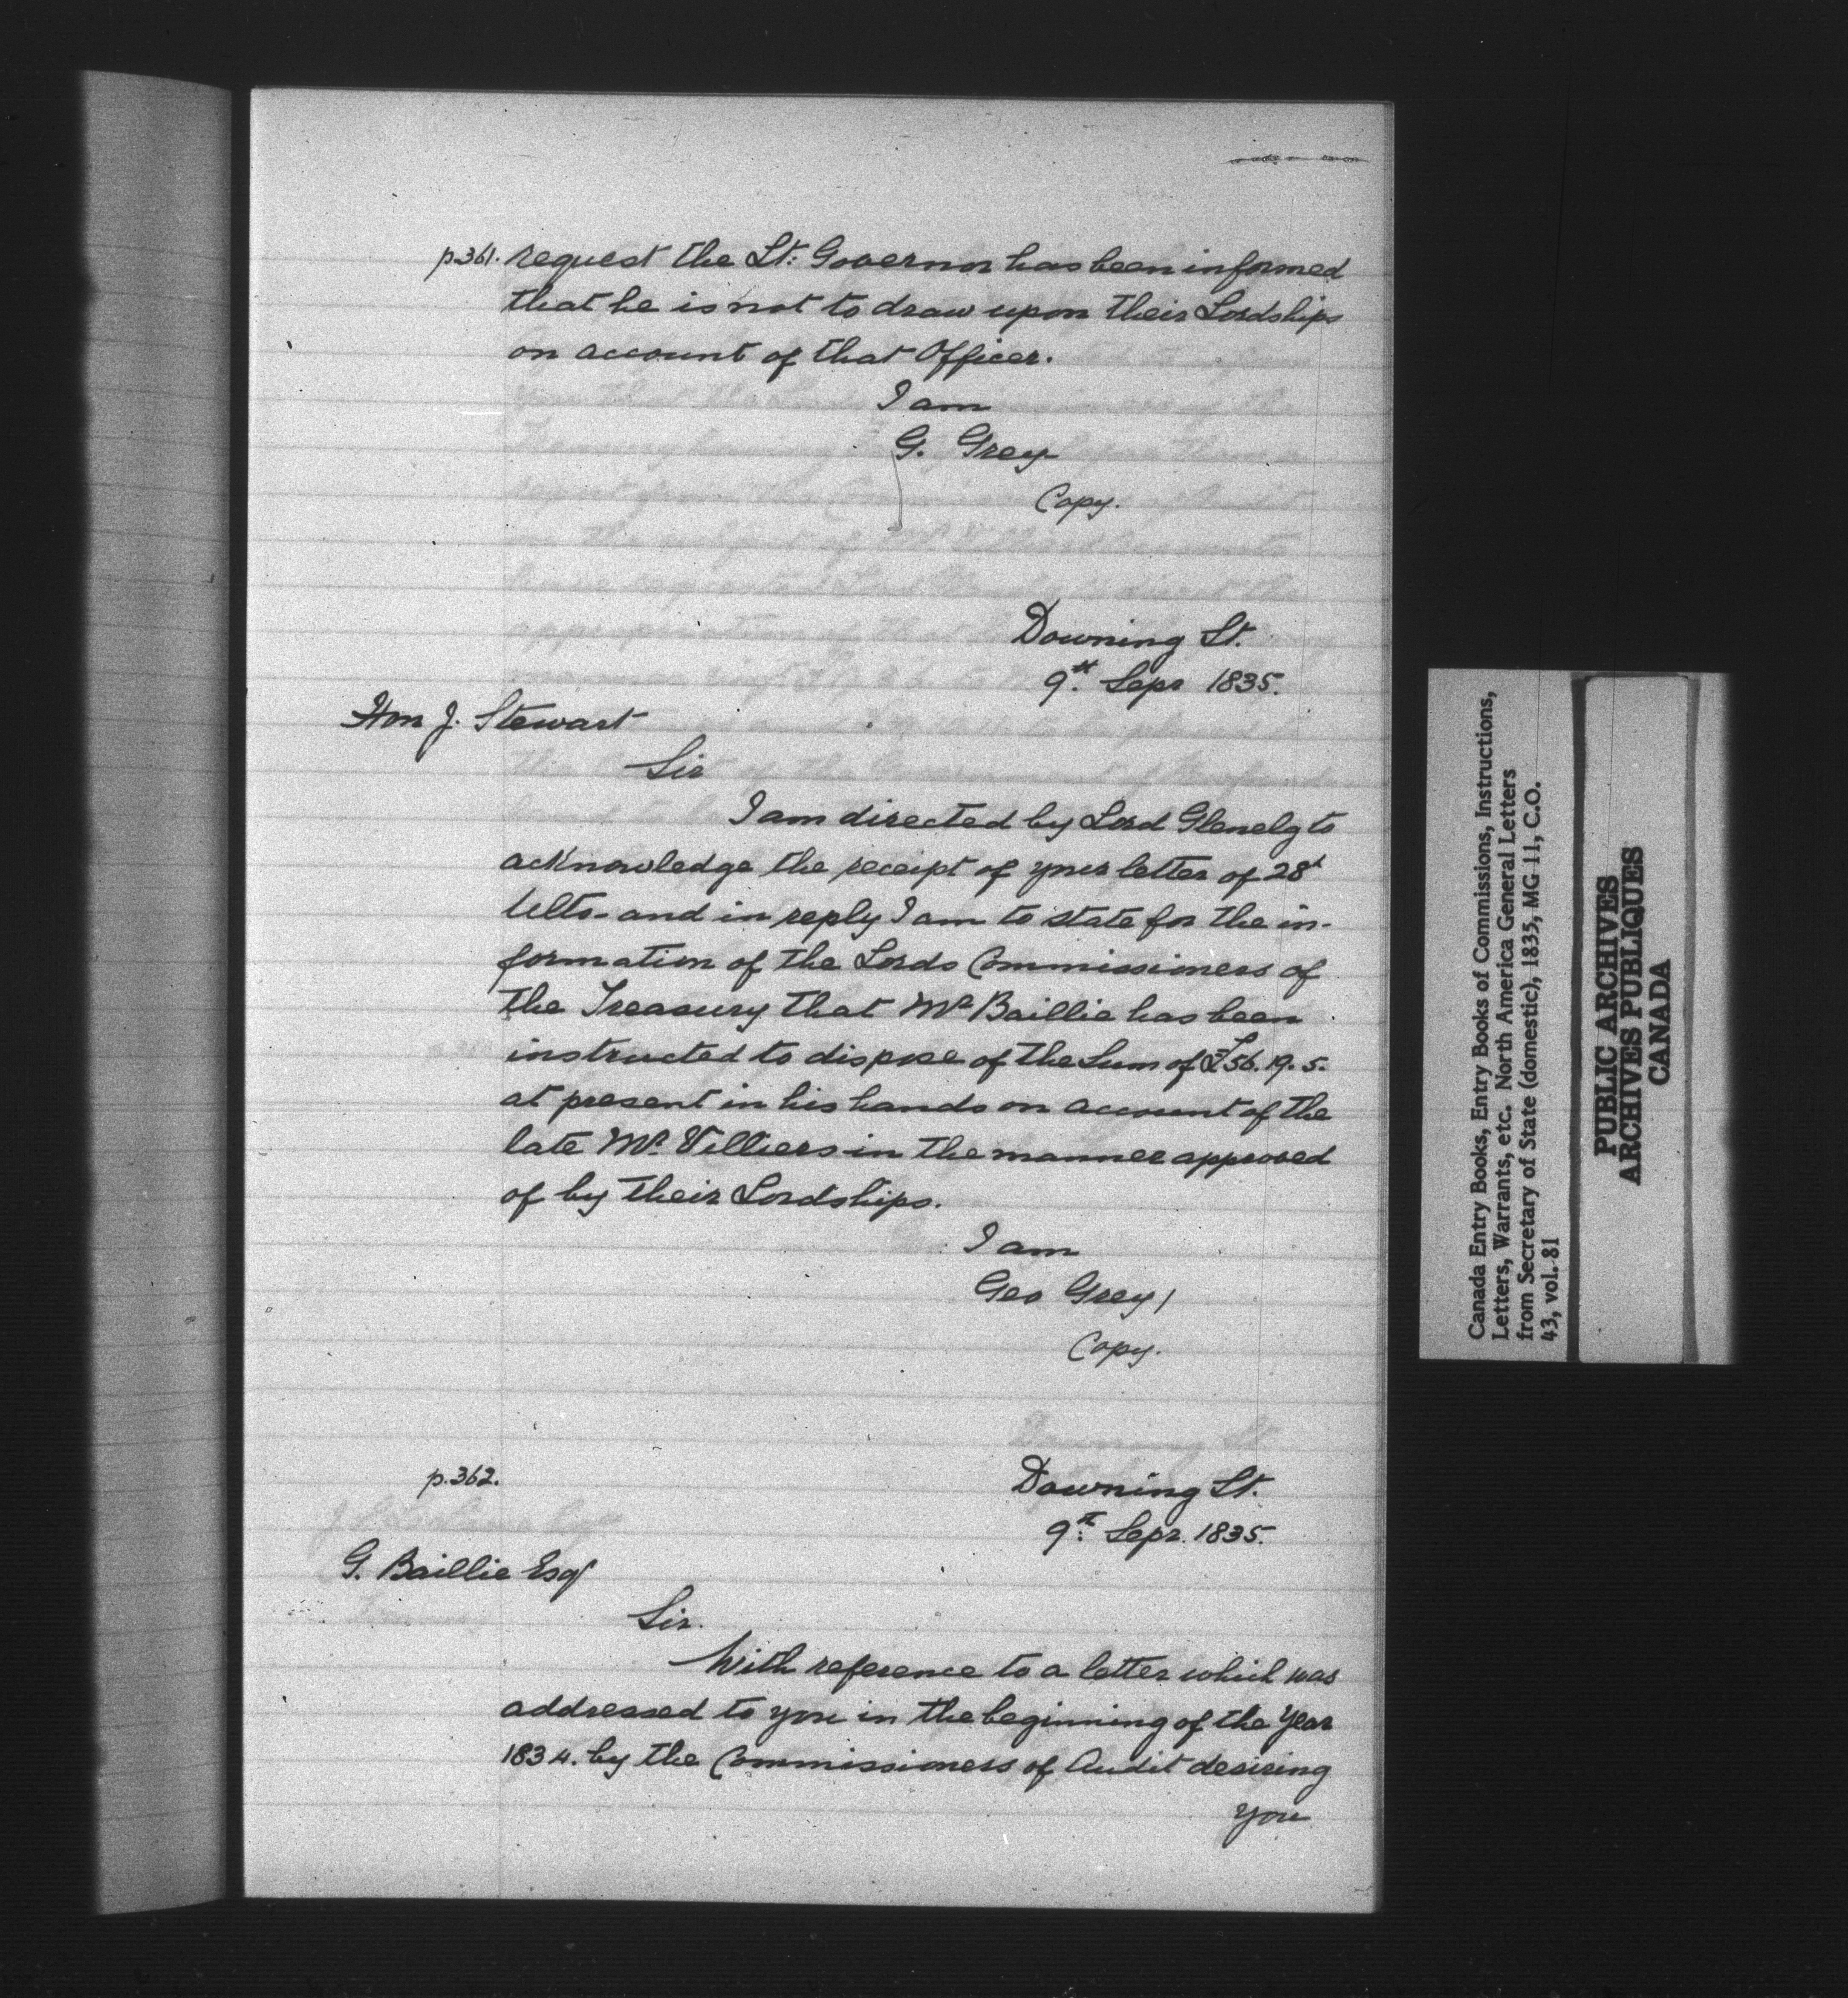 p.361. request the Lt: Governor has been informed
that he is not to draw upon their Lordships
on account of that Officer.
I am
G. Grey
Copy.
Downing St.
9th. Sepr 1835.
Hon J. Stewart
Sir
I am directed by Lord Glenelg to
acknowledge the receipt of your letter of 28th
Ulto. and in reply I am to state for the in-
formation of the Lords Commissioners of
the Treasury that Mr Baillie has been
instructed to dispose of the Sum of £56.19.5.
at present in his hands on account of the
late Mr. Villiers in the manner approved
of by their Lordships.
I am
Geo Grey/
Copy.
p.362.
Downing St.
9th. Sepr. 1835.
G. Baillie Esqr
Sir.
With reference to a letter which was
addressed to you in the beginning of the Year
1834. by the Commissioners of Audit desiring
you
Canada Entry Books, Entry Books of Commissions, Instructions,
Letters, Warrants, etc. North America General Letters
from Secretary of State (domestic), 1835, MG 11, C.O.
43, vol. 81
PUBLIC ARCHIVES
ARCHIVES PUBLIQUES
CANADA